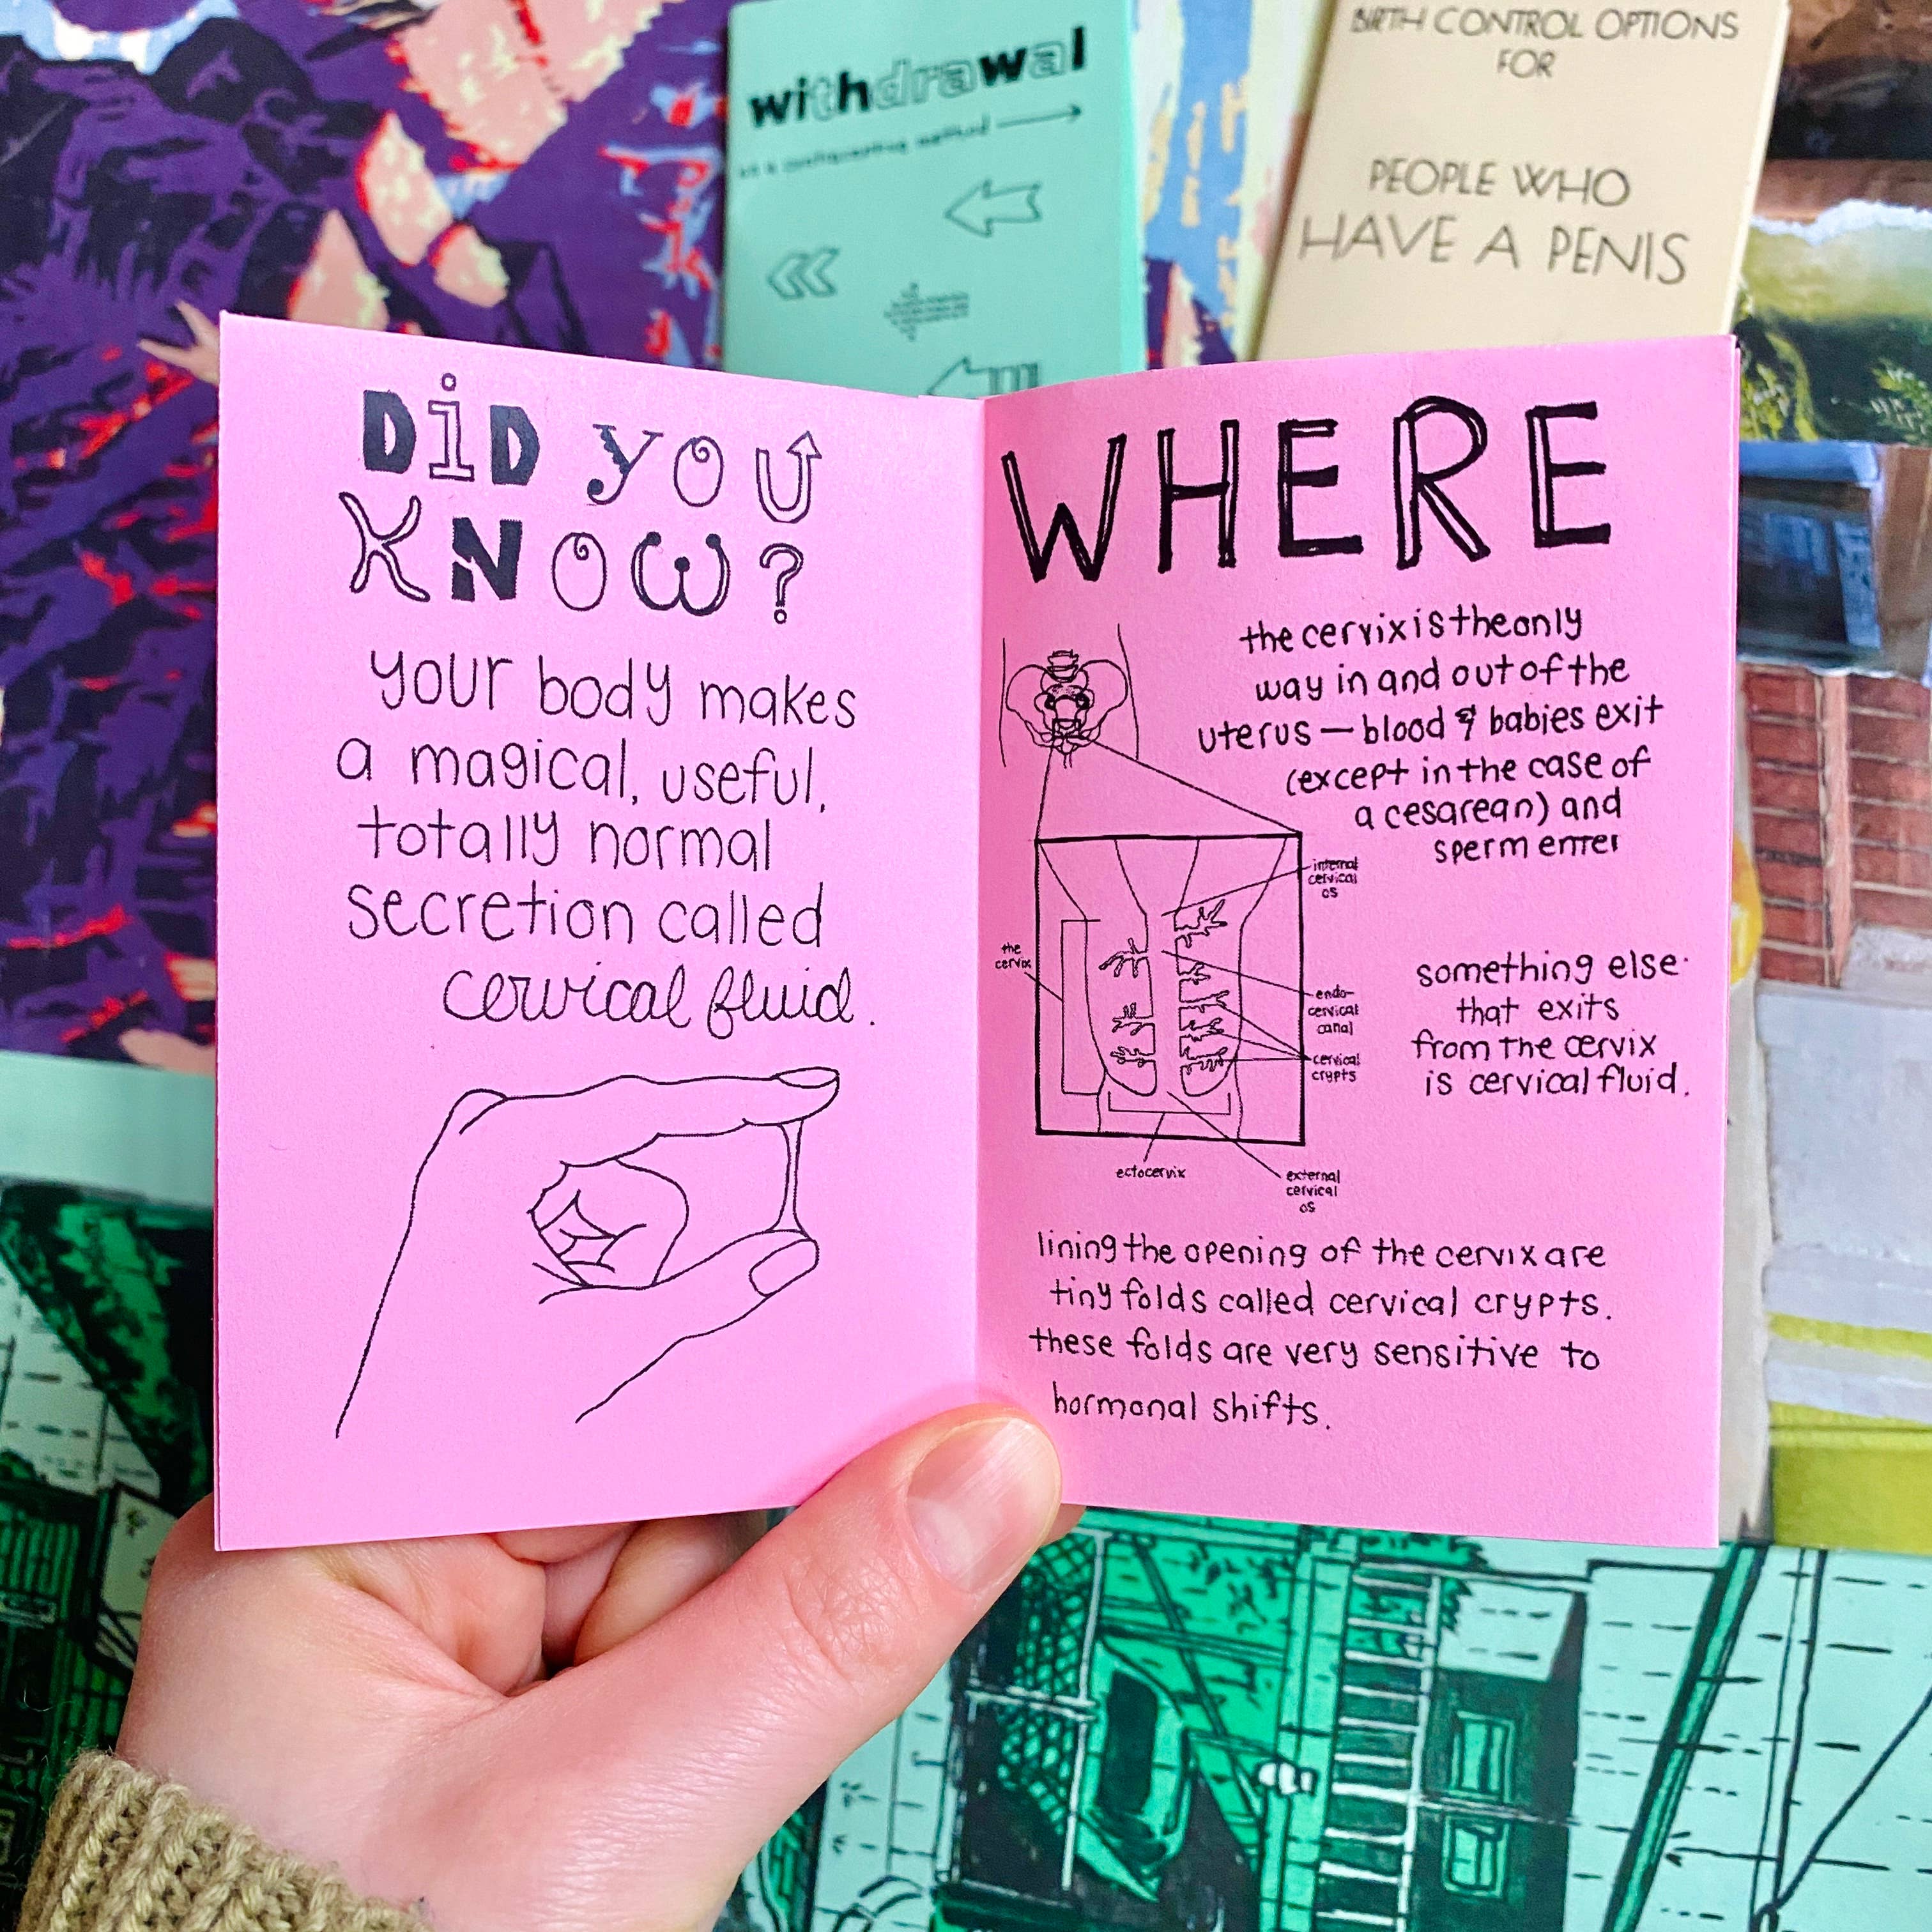 withdrawal
as a contraceptive method
BIRTH CONTROL OPTIONS
FOR
PEOPLE WHO
HAVE A PENIS
DiD yOU
KNOW?
your body makes
a magical, useful,
totally normal
secretion called
cervical fluid.
WHERE
the cervix is the only
way in and out of the
uterus — blood & babies exit
(except in the case of
a cesarean) and
sperm enter
internal
cervical
os
the
cervix
something else
that exits
from the cervix
is cervical fluid.
endo-
cervical
canal
cervical
crypts
ectocervix
external
cervical
os
lining the opening of the cervix are
tiny folds called cervical crypts.
these folds are very sensitive to
hormonal shifts.